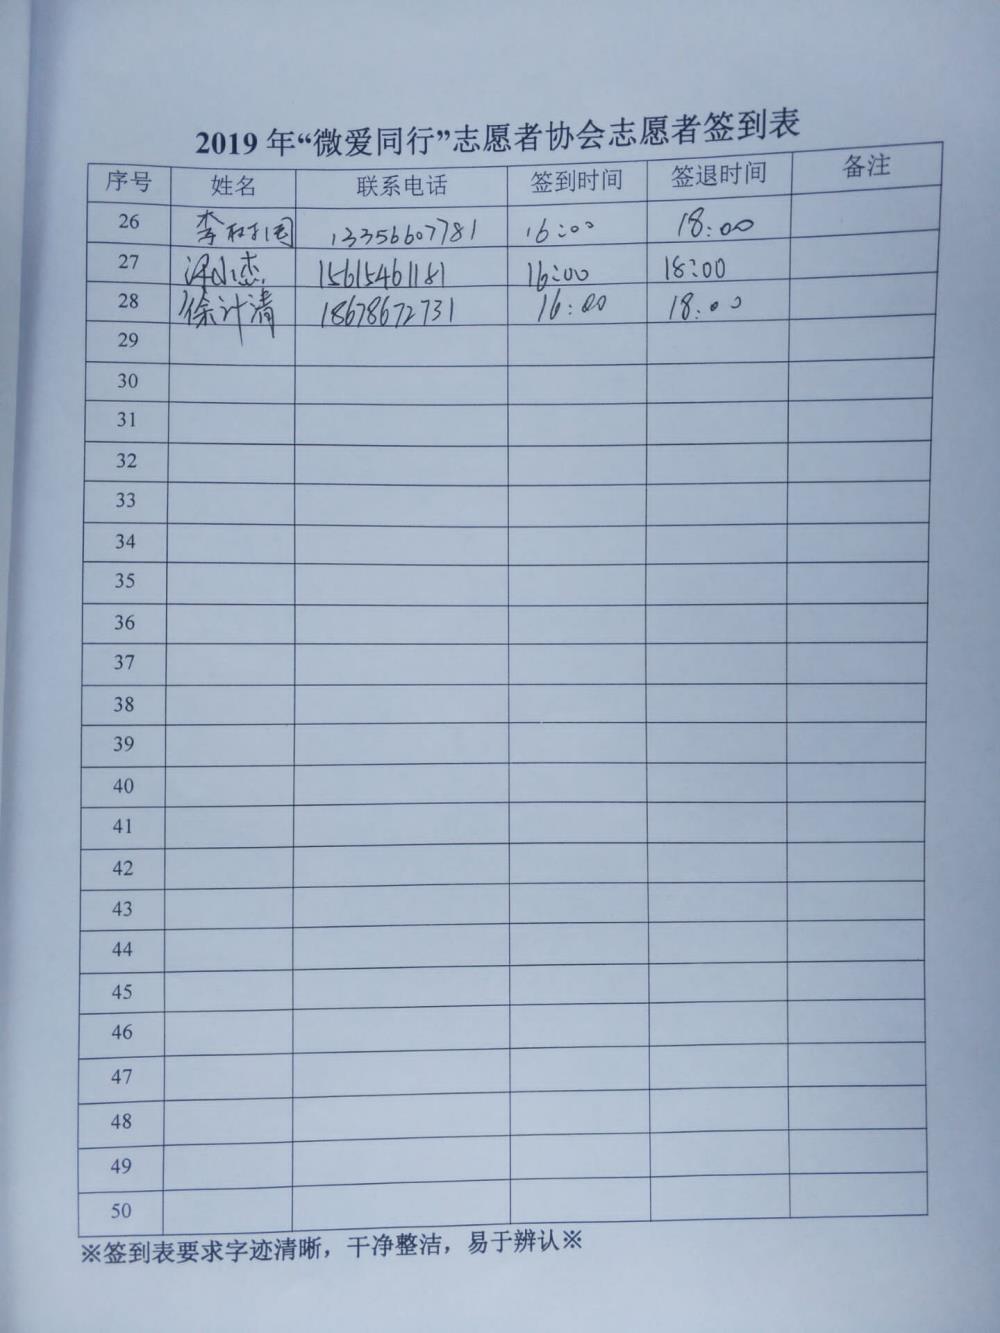 2019 年“微爱同行”志愿者协会志愿者签到表
序号 姓名 联系电话 签到时间 签退时间 备注
26 李 13356607781 16:00 18:00
27 小杰 15615461181 16:00 18:00
28 徐计清 18678672731 16:00 18:00
29
30
31
32
33
34
35
36
37
38
39
40
41
42
43
44
45
46
47
48
49
50
※签到表要求字迹清晰，干净整洁，易于辨认※